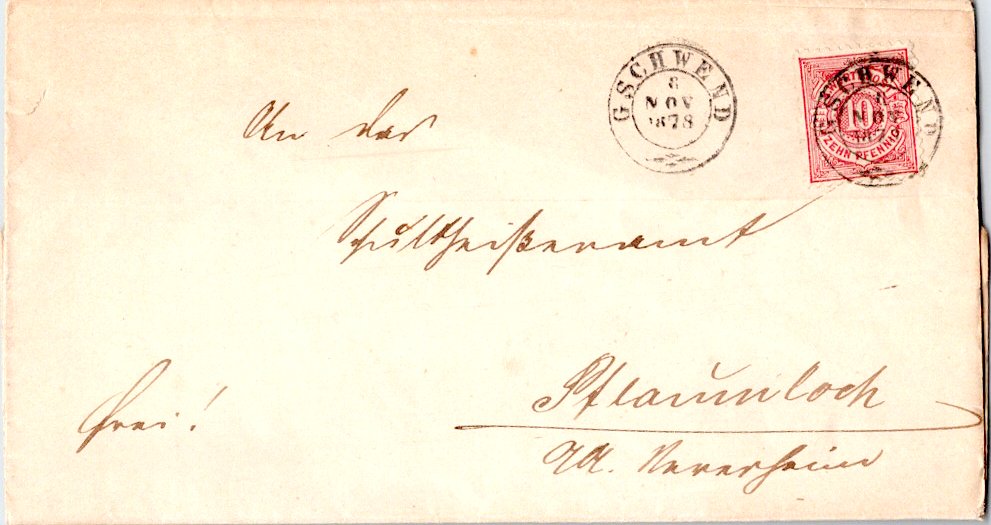 GSCHWEND
8
NOV
1878
GSCHWEND
8
NOV
ZEHN PFENNIG
An das
Schultheißenamt
Pflaumloch
frei!
OA. Neresheim